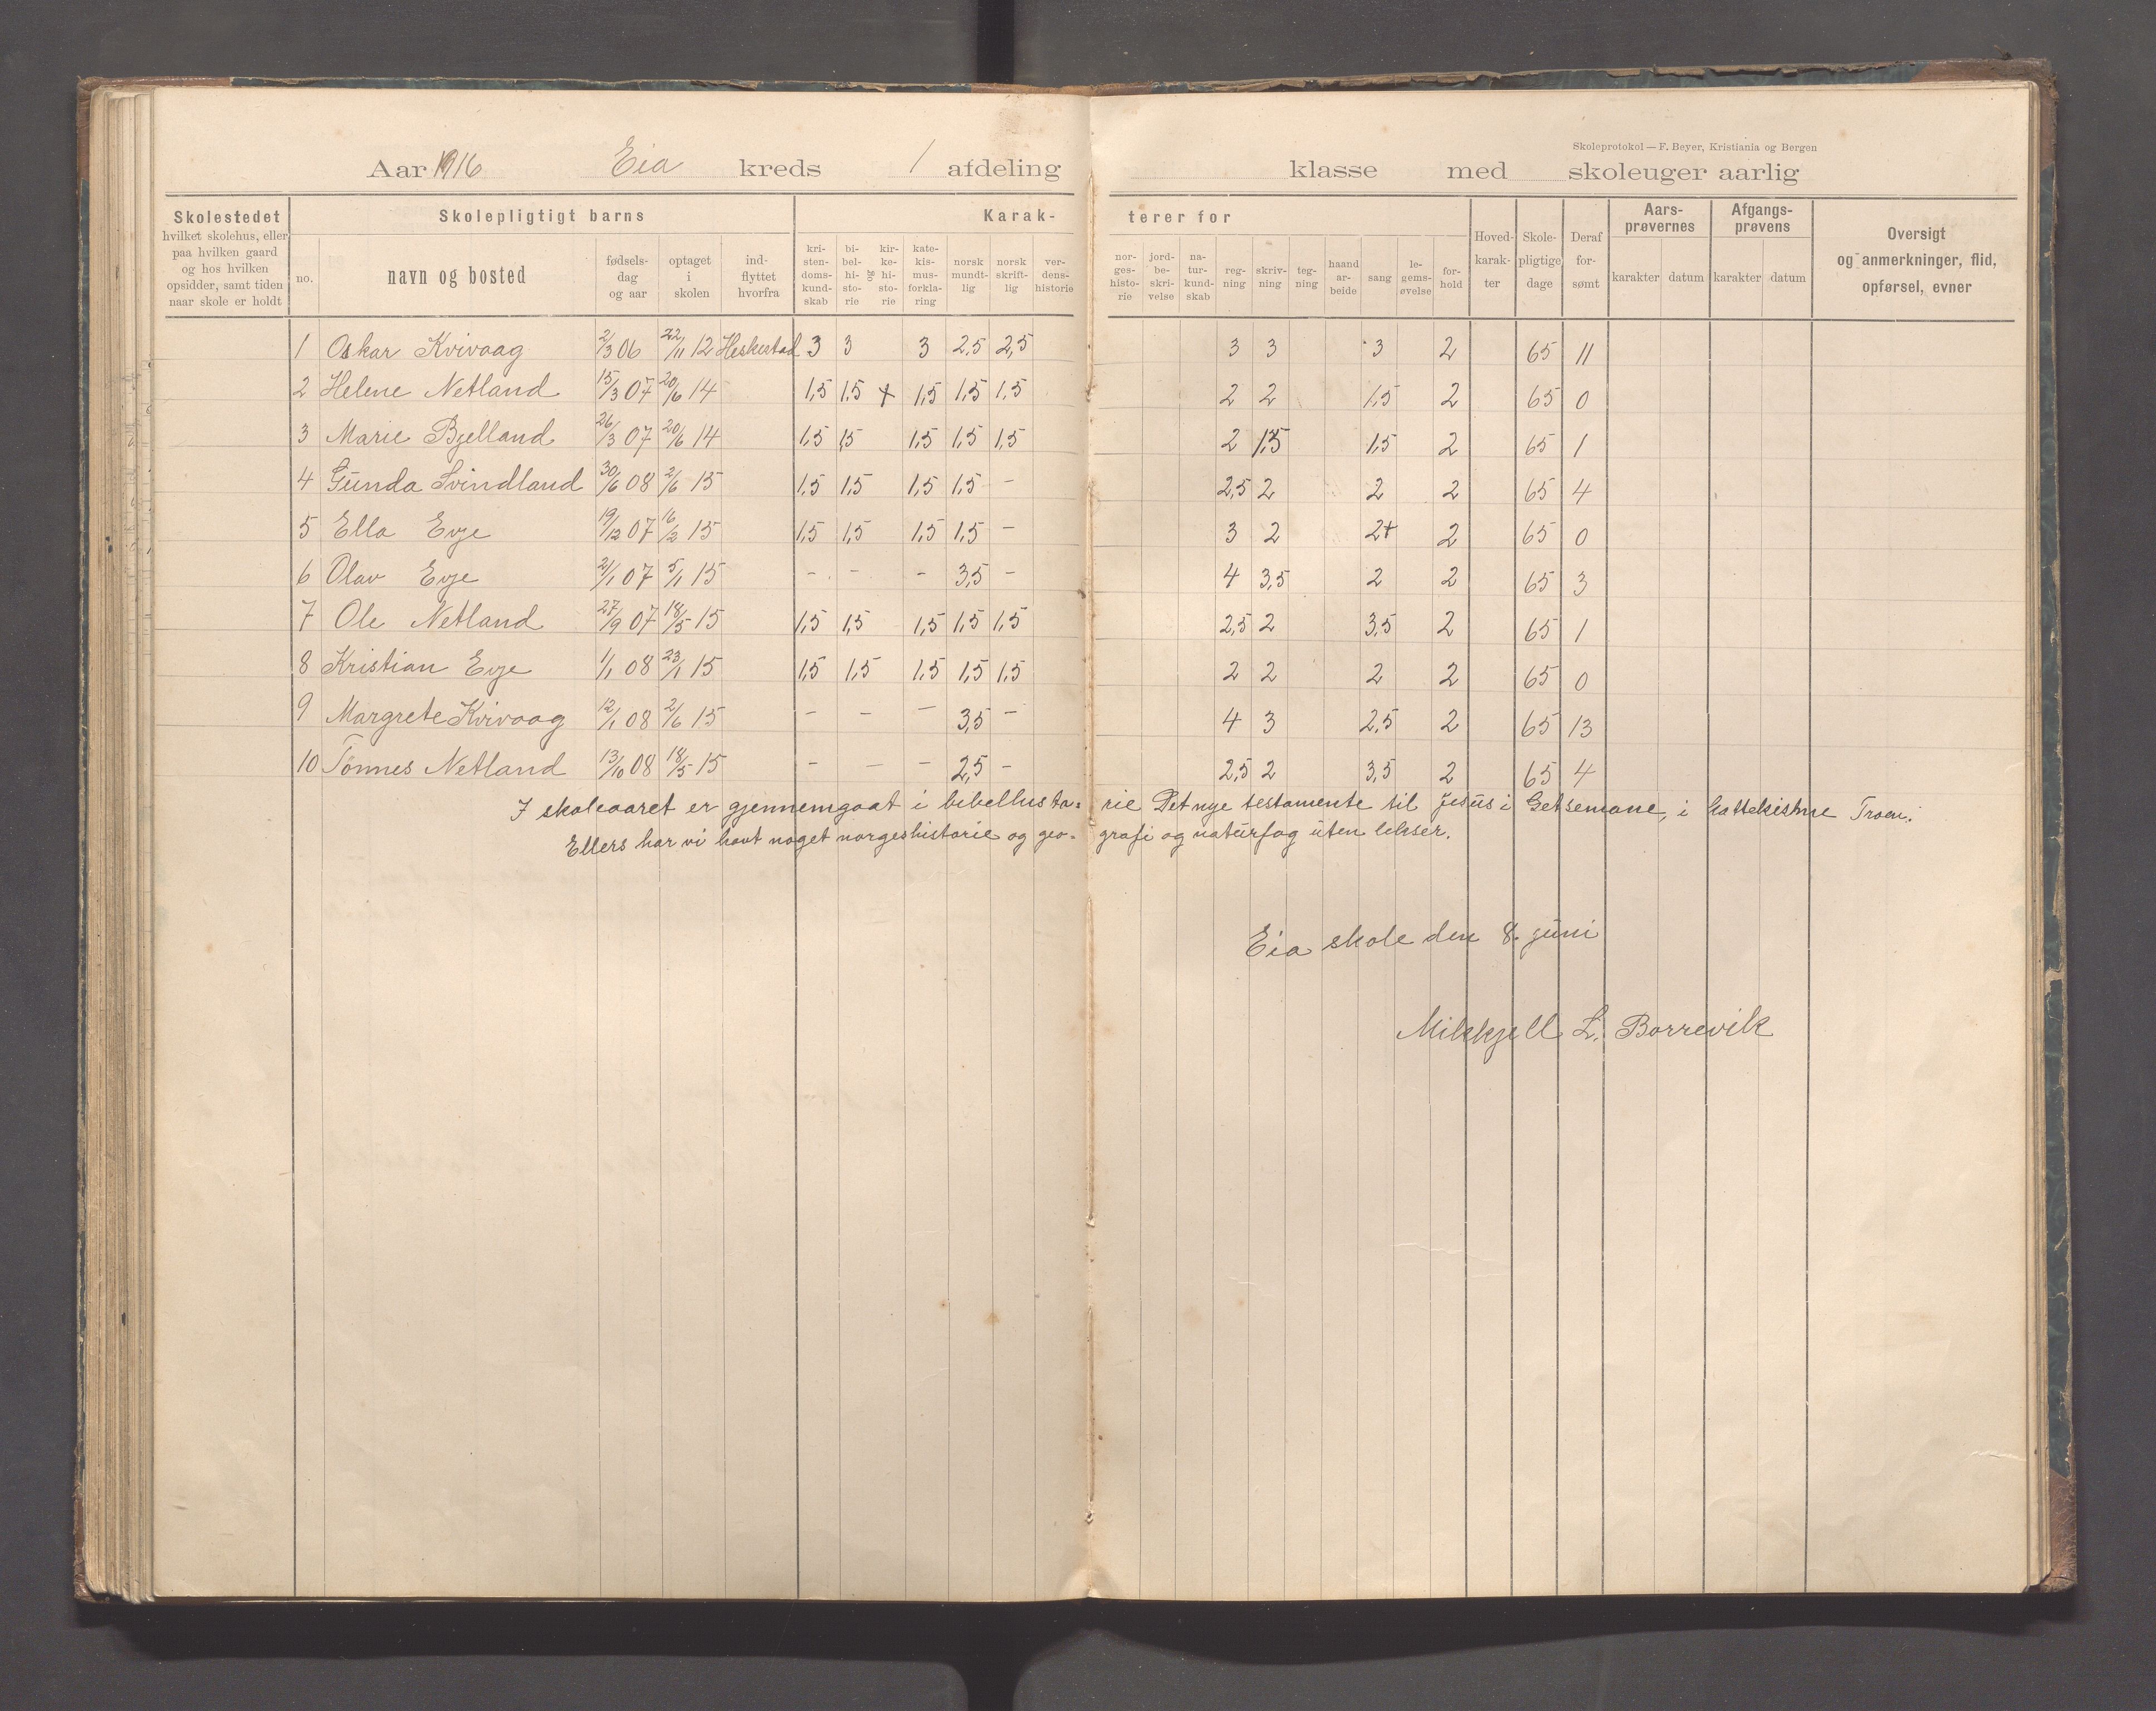 Skoleprotokol — F. Beyer, Kristiania og Bergen
Aar 1916 Eia kreds 1 afdeling klasse med skoleuger aarlig
Skolestedet hvilket skolehus, eller paa hvilken gaard og hos hvilken opsidder, samt tiden naar skole er holdt
Skolepligtigt barns
no. navn og bosted fødsels-dag og aar optaget i skolen ind-flyttet hvorfra
Karak-terer for
kri-sten-doms-kund-skab bi-bel-hi-sto-rie og kir-ke-hi-sto-rie kate-kis-mus-forkla-ring norsk mundt-lig norsk skrift-lig ver-dens-historie nor-ges-histo-rie jord-be-skri-velse na-tur-kund-skab reg-ning skriv-ning teg-ning haand ar-beide sang le-gems-øvelse for-hold
Hoved-karak-ter Skole-pligtige dage Deraf for-sømt
Aars-prøvernes karakter datum
Afgangs-prøvens karakter datum
Oversigt og anmerkninger, flid, opførsel, evner
1 Oskar Kvivaag 2/3 06 22/11 12 Heskestad 3 3 3 2,5 2,5 3 3 3 2 65 11
2 Helene Netland 15/3 07 20/6 14 1,5 1,5 + 1,5 1,5 1,5 2 2 1,5 2 65 0
3 Marie Bjelland 26/3 07 20/6 14 1,5 1,5 1,5 1,5 1,5 2 1,5 1,5 2 65 1
4 Gunda Svindland 30/6 08 2/6 15 1,5 1,5 1,5 1,5 - 2,5 2 2 2 65 4
5 Ella Evje 19/12 07 16/2 15 1,5 1,5 1,5 1,5 - 3 2 2+ 2 65 0
6 Olav Evje 2/1 07 5/1 15 - - - 3,5 - 4 3,5 2 2 65 3
7 Ole Netland 27/9 07 18/5 15 1,5 1,5 1,5 1,5 1,5 2,5 2 3,5 2 65 1
8 Kristian Evje 1/1 08 23/1 15 1,5 1,5 1,5 1,5 1,5 2 2 2 2 65 0
9 Margrete Kvivaag 12/1 08 2/6 15 - - - 3,5 - 4 3 2,5 2 65 13
10 Tønnes Netland 13/10 08 18/5 15 - - - 2,5 - 2,5 2 3,5 2 65 4
I skoleaaret er gjennemgaat i bibelhisto-rie Det nye testamente til Jesus i Getsemane, i kattekisme Troen.
Ellers har vi havt noget norgeshistorie og geo-grafi og naturfag uten lekser.
Eia skole den 8. juni
Mikkjell L. Borrevik